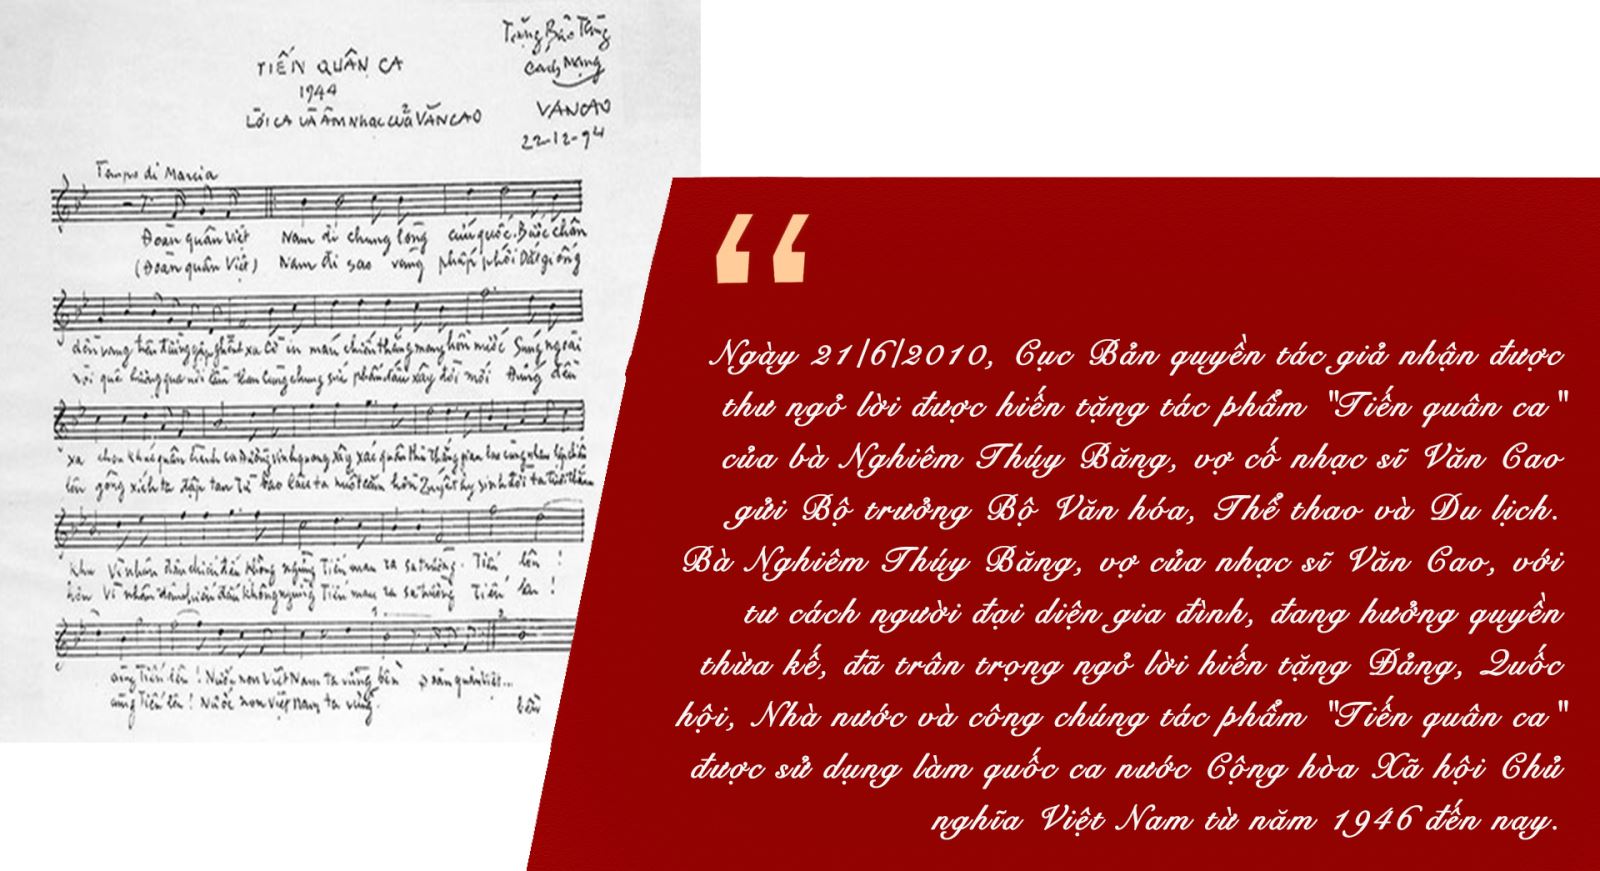 TIẾN QUÂN CA
1944
LỜI CA VÀ ÂM NHẠC CỦA VĂN CAO
Tặng Bảo Tàng
Cách Mạng
VANCAO
22-12-94
Tempo di Marcia
Đoàn quân Việt Nam đi chung lòng cứu quốc. Bước chân
(Đoàn quân Việt) Nam đi sao vàng phấp phới Dắt giống
dồn vang trên đường gập ghềnh xa Cờ in máu chiến thắng mang hồn nước Súng ngoài
nòi quê hương qua nơi lầm than Cùng chung sức phấn đấu xây đời mới Đứng đều
xa chen khúc quân hành ca Đường vinh quang xây xác quân thù Thắng gian lao cùng nhau lập chiến
lên gông xích ta đập tan Từ bao lâu ta nuốt căm hờn Quyết hy sinh đời ta tươi thắm
khu Vì nhân dân chiến đấu không ngừng Tiến mau ra sa trường. Tiến lên !
hơn Vì nhân dân chiến đấu không ngừng Tiến mau ra sa trường Tiến lên !
cùng Tiến lên ! Nước non Việt Nam ta vững bền Đoàn quân Việt...
cùng Tiến lên ! Nước non Việt Nam ta vững. bền
“
Ngày 21/6/2010, Cục Bản quyền tác giả nhận được
thư ngỏ lời được hiến tặng tác phẩm "Tiến quân ca"
của bà Nghiêm Thúy Băng, vợ cố nhạc sĩ Văn Cao
gửi Bộ trưởng Bộ Văn hóa, Thể thao và Du lịch.
Bà Nghiêm Thúy Băng, vợ của nhạc sĩ Văn Cao, với
tư cách người đại diện gia đình, đang hưởng quyền
thừa kế, đã trân trọng ngỏ lời hiến tặng Đảng, Quốc
hội, Nhà nước và công chúng tác phẩm "Tiến quân ca"
được sử dụng làm quốc ca nước Cộng hòa Xã hội Chủ
nghĩa Việt Nam từ năm 1946 đến nay.